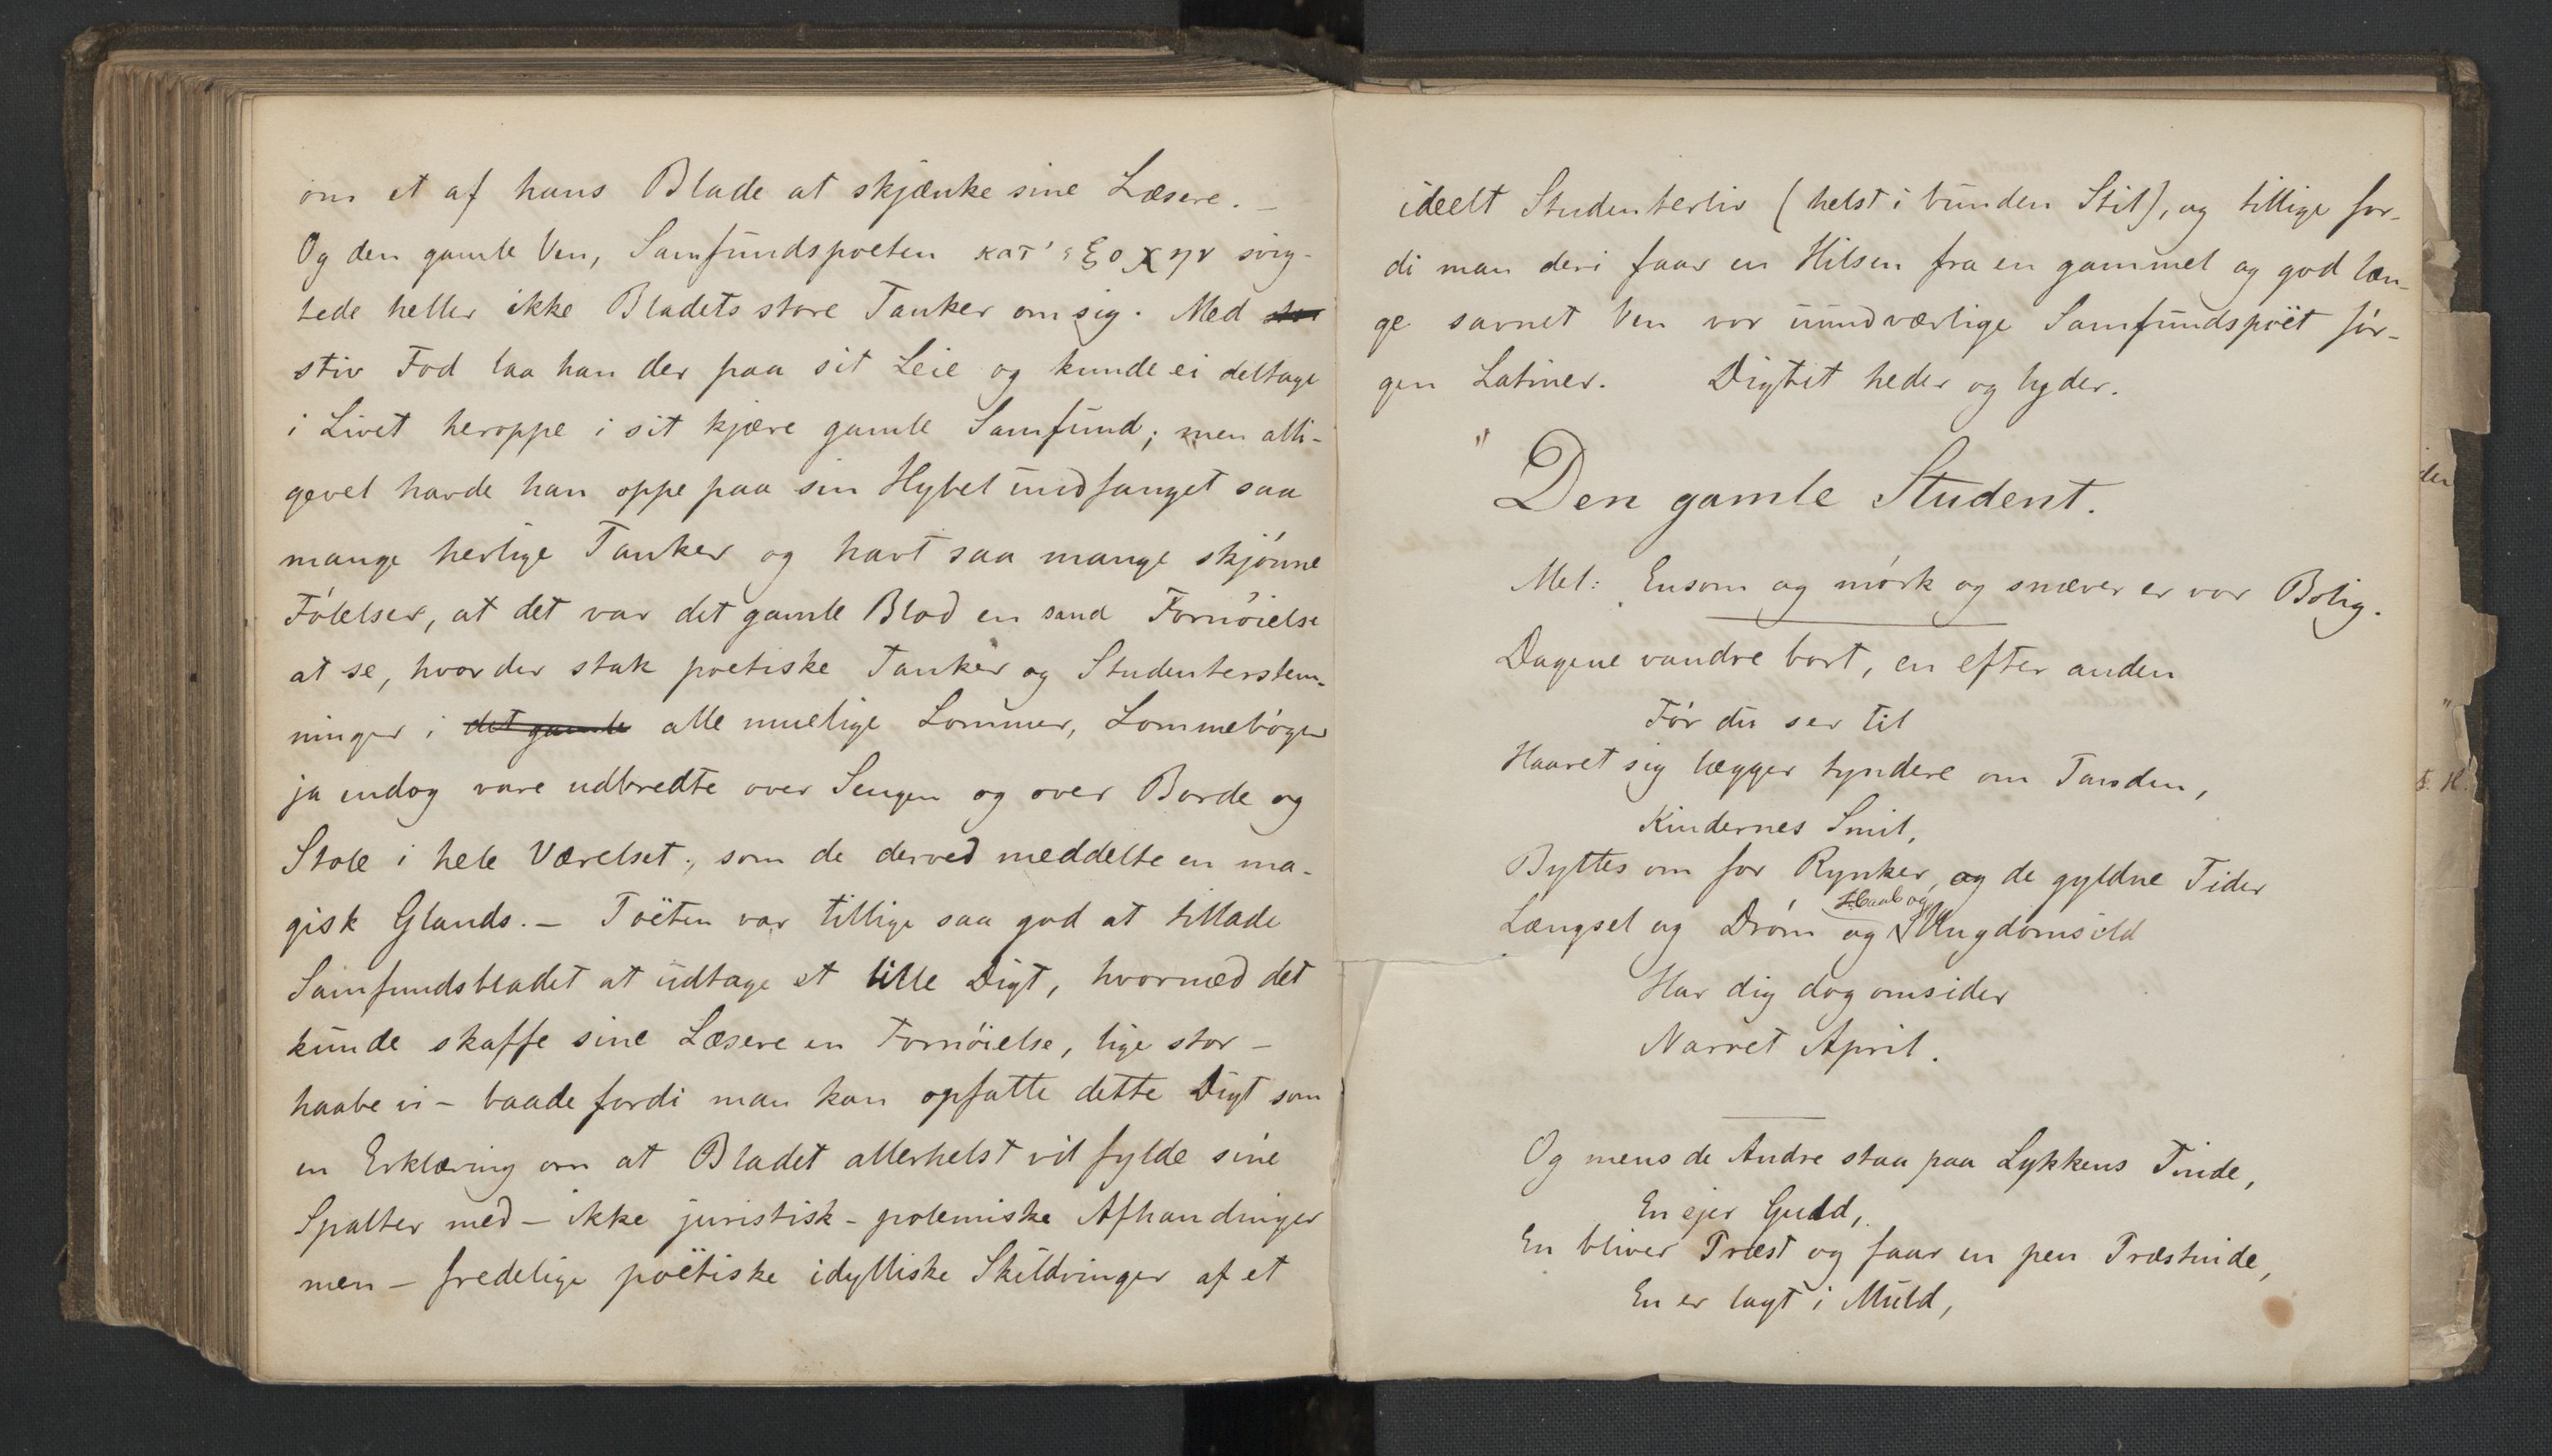 om et af hans Blade at skjænke sine Læsere. –
Og den gamle Ven, Samfundspoeten κατ' εξοχην svig-
tede heller ikke Bladets store Tanker om sig. Med stor
stiv Fod laa han der paa sit Leie og kunde ei deltage
i Livet heroppe i sit kjære gamle Samfund; men alli-
gevel havde han oppe paa sin Hybel undfanget saa
mange herlige Tanker og havt saa mange skjønne
Følelser, at det var det gamle Blad en sand Fornøielse
at se, hvor der stak poetiske Tanker og Studenterstem-
ninger i det gamle alle muelige Lommer, Lommebøger
ja endog vare udbredte over Sengen og over Borde og
Stole i hele Værelset, som de derved meddelte en ma-
gisk Glands. – Poëten var tillige saa god at tillade
Samfundsbladet at udtage et lille Digt, hvormed det
kunde skaffe sine Læsere en Fornøielse, lige stor –
haabe vi – baade fordi man kan opfatte dette Digt som
en Erklæring om at Bladet allerhelst vil fylde sine
Spalter med – ikke juristisk-polemiske Afhandinger
men – fredelige poëtiske idylliske Skildringer af et
ideelt Studenterliv (helst i bunden Stil), og tillige for-
di man deri faar en Hilsen fra en gammel og god læn-
ge savnet Ven vor uundværlige Samfundspoët Jør-
gen Latiner. Digtet heder og lyder.
"Den gamle Student.
Mel: Ensom og mørk og snæver er vor Bolig.
Dagene vandre bort, en efter anden
Før du ser til
Haaret sig lægger tyndere om Panden,
Kindernes Smil,
Byttes om for Rynker, og de gyldne Tider
Haab og
Længsel og Drøm og Ungdomsild
Har dig dog omsider
Narret April.
Og mens de Andre staa paa Lykkens Tinde,
En ejer Guld,
En bliver Præst og faar en pen Præstinde,
En er lagt i Muld,